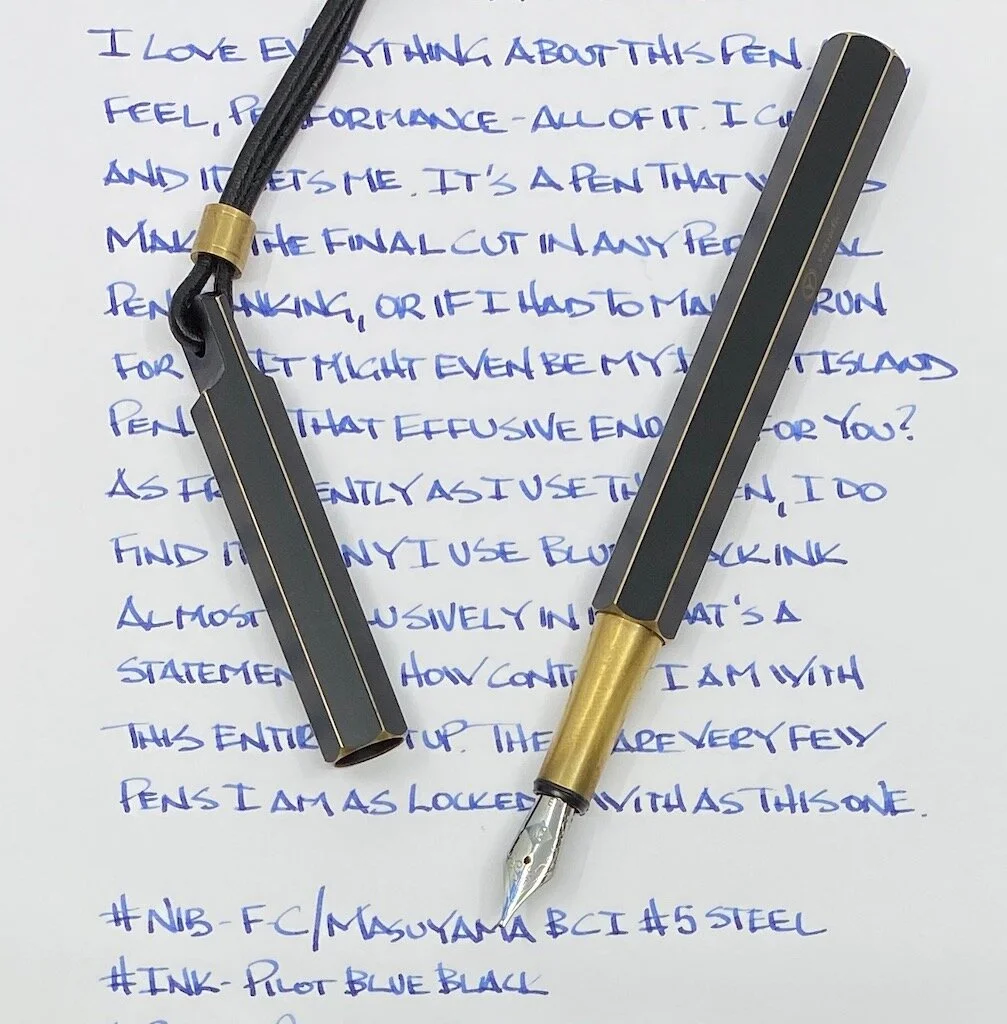 I LOVE EVERYTHING ABOUT THIS PEN.
FEEL, PERFORMANCE - ALL OF IT. I
AND IT GETS ME. IT'S A PEN THAT WOULD
MAKE THE FINAL CUT IN ANY PERSONAL
PEN RANKING, OR IF I HAD TO MAKE RUN
FOR IT MIGHT EVEN BE MY DESERT ISLAND
PEN THAT EFFUSIVE ENOUGH FOR YOU?
AS FREQUENTLY AS I USE THIS PEN, I DO
FIND IT FUNNY I USE BLUE BLACK INK
ALMOST EXCLUSIVELY IN IT. THAT'S A
STATEMENT HOW CONTENT I AM WITH
THIS ENTIRE SETUP. THERE ARE VERY FEW
PENS I AM AS LOCKED WITH AS THIS ONE.
#NIB - F-C/MASUYAMA BCI #5 STEEL
#INK - PILOT BLUE BLACK